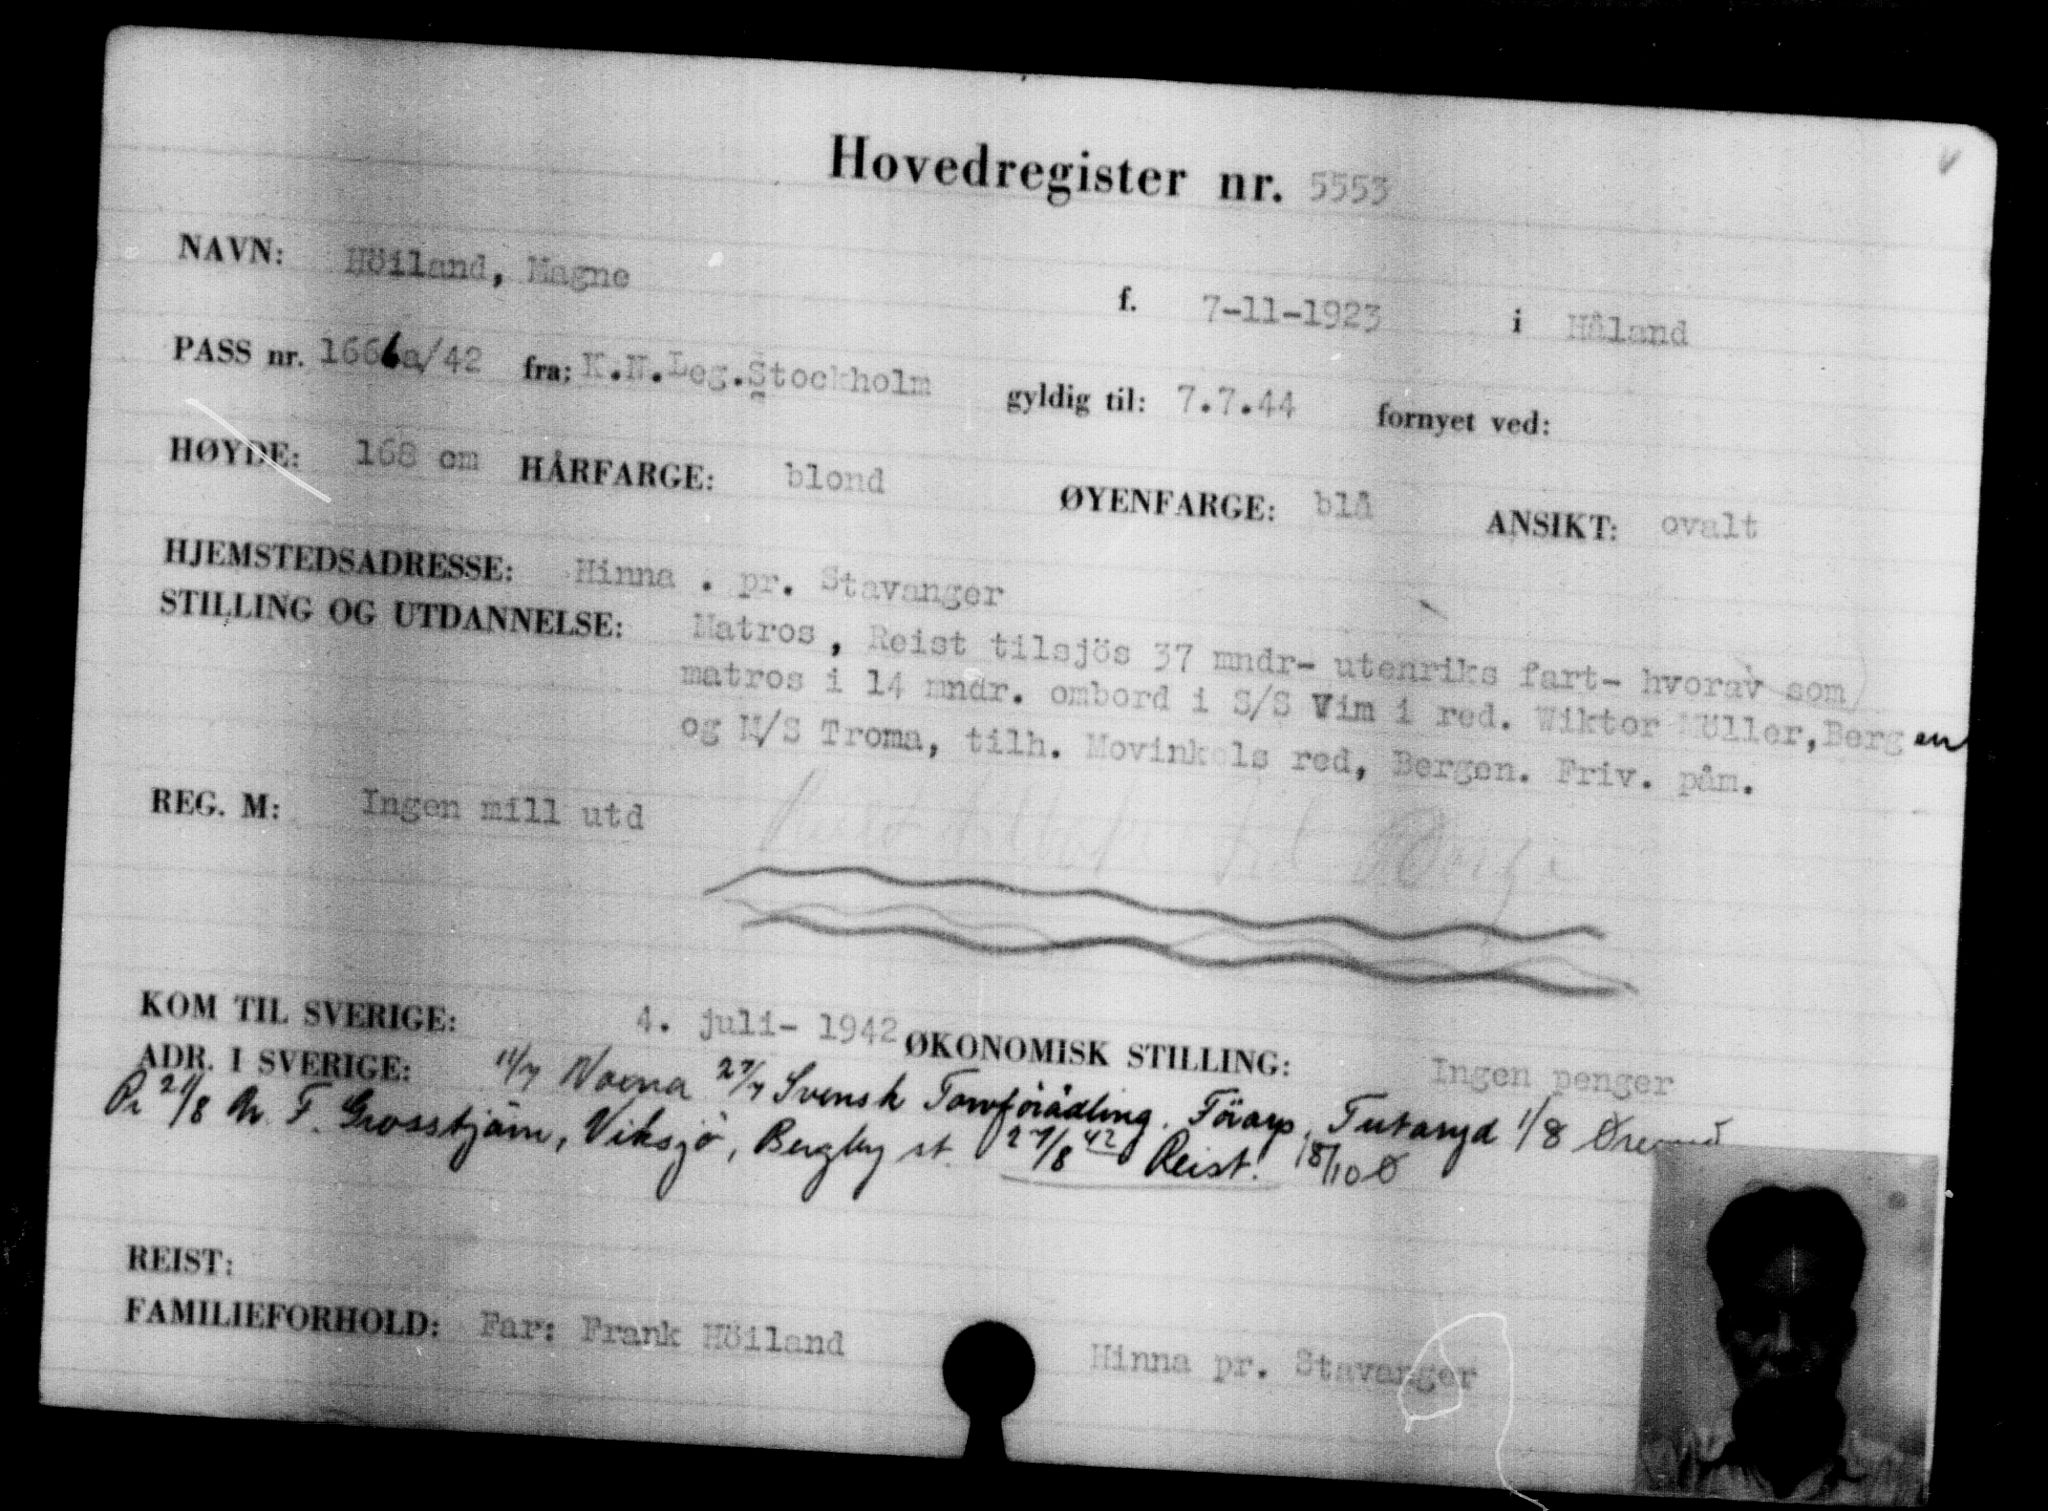 Hovedregister nr. 5553
NAVN: Höiland, Magne f. 7-11-1923 i Håland
PASS nr. 1666a/42 fra: K.N.Leg.Stockholm gyldig til: 7.7.44 fornyet ved:
HØYDE: 168 cm HÅRFARGE: blond ØYENFARGE: blå ANSIKT: ovalt
HJEMSTEDSADRESSE: Hinna . pr. Stavanger
STILLING OG UTDANNELSE: Matros, Reist tilsjös 37 mndr- utenriks fart- hvorav som
matros i 14 mndr. ombord i S/S Vim i red. Wiktor Möller, Bergen
og M/S Troma, tilh. Movinkels red, Bergen. Friv. påm.
REG. M: Ingen mill utd
til Norge
KOM TIL SVERIGE: 4. juli- 1942 ØKONOMISK STILLING: Ingen penger
ADR. I SVERIGE: 11/7 Norra 27/7 Svensk Torvförädling, Förarp, Tutaryd 1/8
Pr 21/8 Grosstjärn, Viksjö, Bergby st. 27/8 42 Reist. 18/10 Ø
REIST:
FAMILIEFORHOLD: Far: Frank Höiland Hinna pr. Stavanger